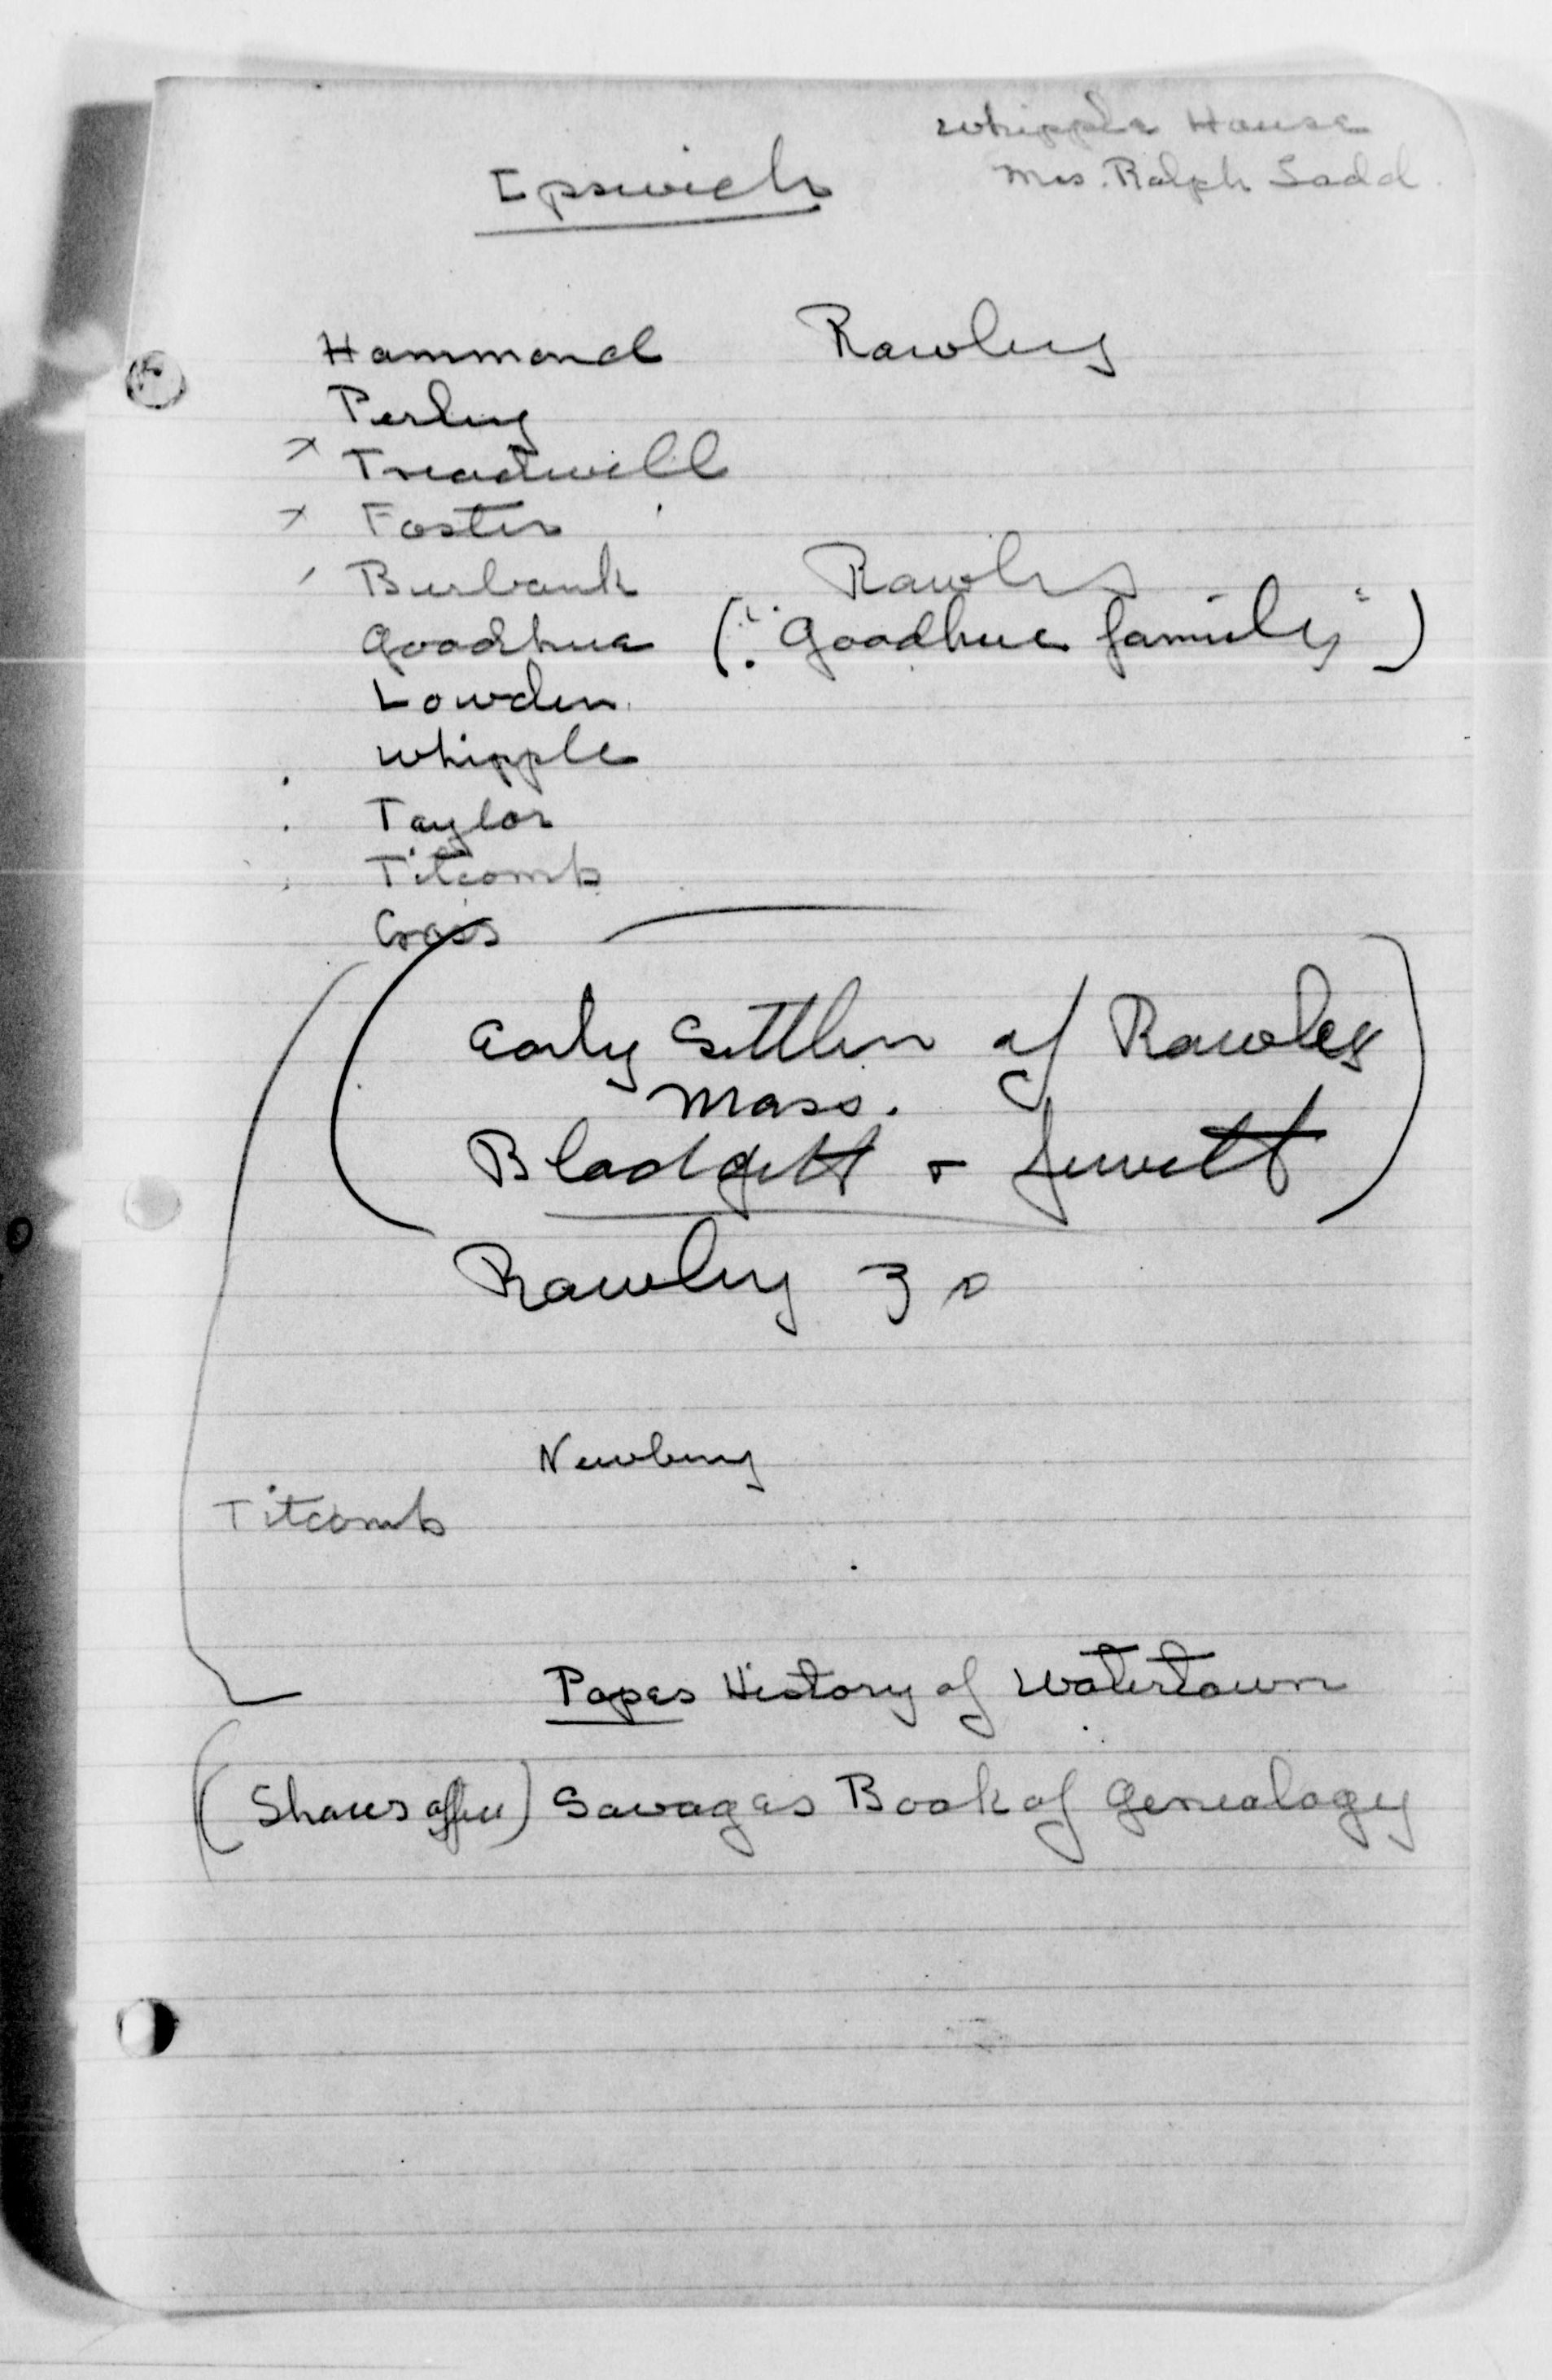 Whipple House
Mrs. Ralph Ladd
Ipswich
Hammond Rowley
Perley
x Treadwell
x Foster
Burbank Rowley
Goodhue ("Goodhue family")
Lowden
Whipple
Taylor
Titcomb
Cross
(Early Settlers of Rowley
Mass.
Blodgett + Jewett)
Rowley 30
Newbury
Titcomb
Popes History of Watertown
(Shaws office) Savages Book of Genealogy